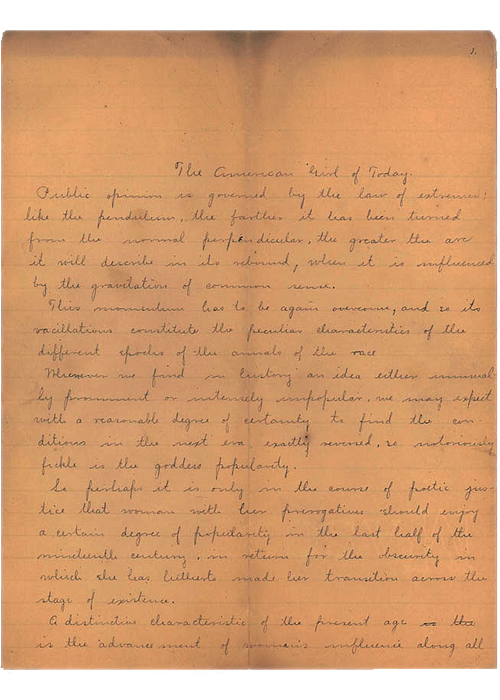 1.
The American Girl of Today.
Public opinion is governed by the law of extremes:
like the pendulum, the farther it has been turned
from the normal perpendicular, the greater the arc
it will describe in its rebound, when it is influenced
by the gravitation of common sense.
This momentum has to be again overcome, and so its
vacillations constitute the peculiar characteristics of the
different epochs of the annals of the race
Whenever we find in history an idea either unusual-
ly prominent or intensely unpopular, we may expect
with a reasonable degree of certainty to find the con-
ditions in the next era exactly reversed, so notoriously
fickle is the goddess popularity.
So perhaps it is only in the course of poetic jus-
tice that woman with her prerogatives should enjoy
a certain degree of popularity in the last half of the
nineteenth century, in return for the obscurity in
which she has hitherto made her transition across the
stage of existence.
A distinctive characteristic of the present age is the
is the advancement of woman's influence along all